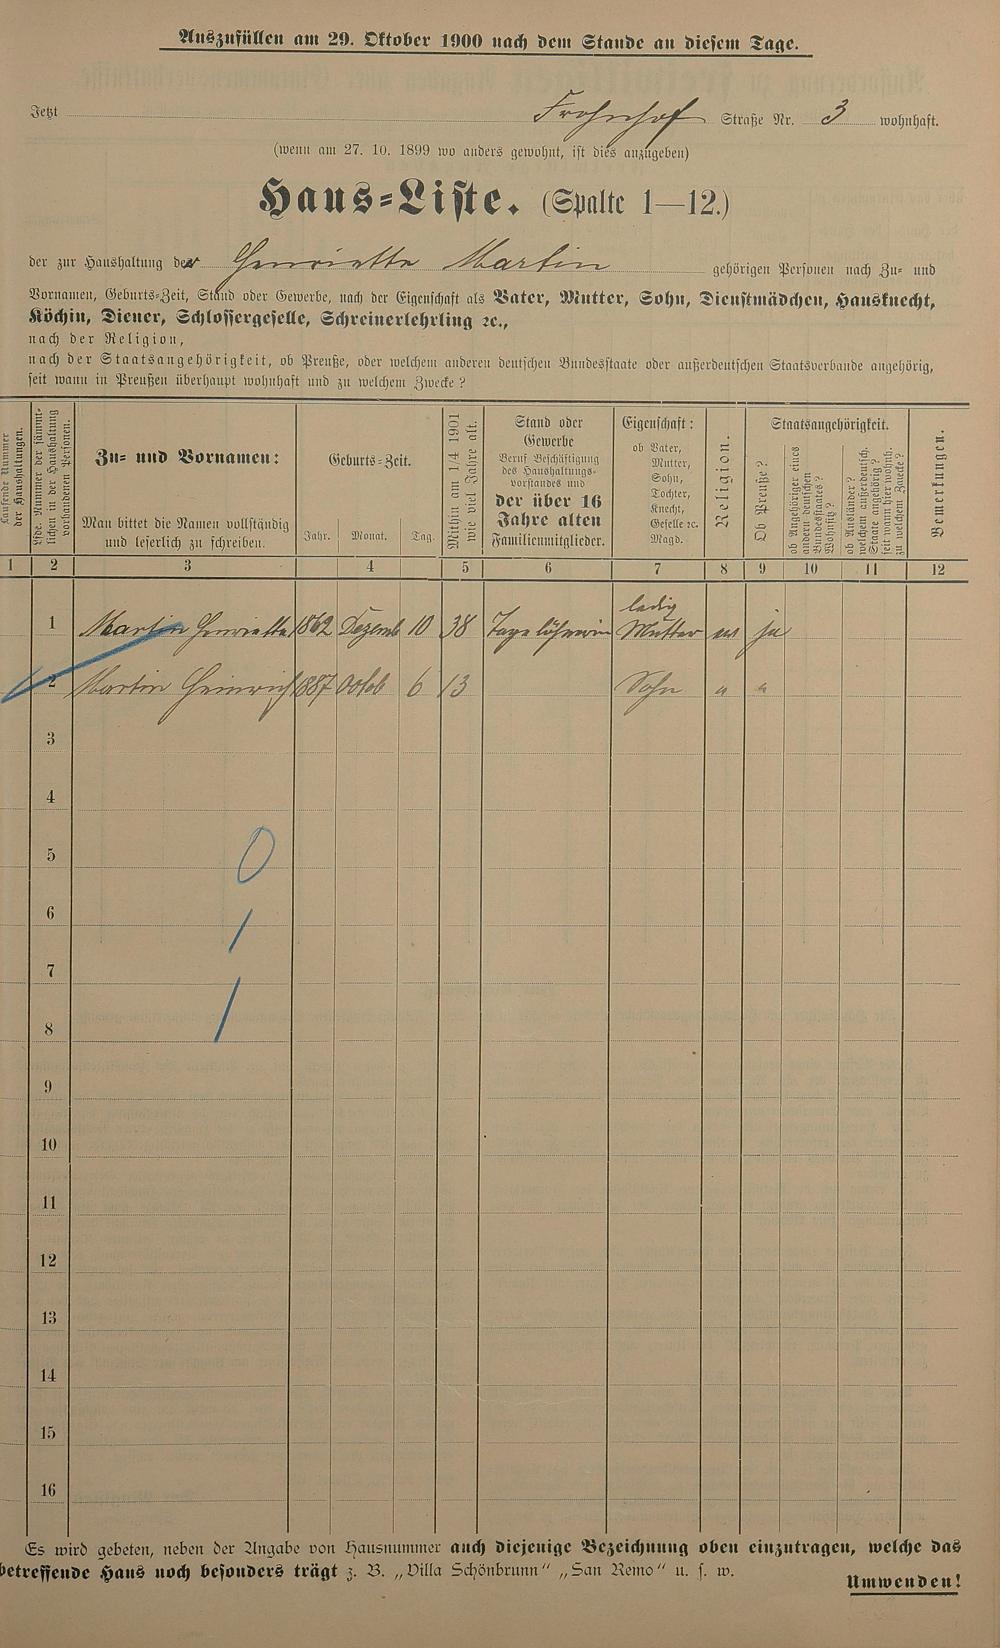 Auszufüllen am 29. Oktober 1900 nach dem Stande an diesem Tage.
Jetzt Frohnhof Straße Nr. 3 wohnhaft.
(wenn am 27. 10. 1899 wo anders gewohnt, ist dies anzugeben)
Haus=Liste. (Spalte 1—12.)
der zur Haushaltung der Henriette Martin gehörigen Personen nach Zu= und
Vornamen, Geburts=Zeit, Stand oder Gewerbe, nach der Eigenschaft als Vater, Mutter, Sohn, Dienstmädchen, Hausknecht,
Köchin, Diener, Schlossergeselle, Schreinerlehrling ꝛc.,
nach der Religion,
nach der Staatsangehörigkeit, ob Preuße, oder welchem anderen deutschen Bundesstaate oder außerdeutschen Staatsverbande angehörig,
seit wann in Preußen überhaupt wohnhaft und zu welchem Zwecke?
Laufende Nummer
der Haushaltungen.
Lfde. Nummer der sämmt=
lichen in der Haushaltung
vorhandenen Personen.
Zu= und Vornamen:
Man bittet die Namen vollständig
und leserlich zu schreiben.
Geburts=Zeit.
Jahr. Monat. Tag.
Mithin am 1/4 1901
wie viel Jahre alt.
Stand oder
Gewerbe
Beruf Beschäftigung
des Haushaltungs=
vorstandes und
der über 16
Jahre alten
Familienmitglieder.
Eigenschaft:
ob Vater,
Mutter,
Sohn,
Tochter,
Knecht,
Geselle ꝛc.
Magd.
Religion.
Staatsangehörigkeit.
Ob Preuße?
ob Angehöriger eines
andern deutschen
Bundesstaates?
Wohnsitz?
ob Ausländer?
welchem außerdeutsch.
Staate angehörig?
seit wann hier wohnh.
zu welchem Zwecke?
Bemerkungen.
1 2 3 4 5 6 7 8 9 10 11 12
ledig
1 Martin Henriette 1862 Dezemb 10 38 Tagelöhnerin Mutter ev ja
2 Martin Heinrich 1887 Octob 6 13 Sohn " "
3
4
5 0
6 1
7
8 1
9
10
11
12
13
14
15
16
Es wird gebeten, neben der Angabe von Hausnummer auch diejenige Bezeichnung oben einzutragen, welche das
betreffende Haus noch besonders trägt z. B. „Villa Schönbrunn" „San Remo" u. s. w.
Umwenden!